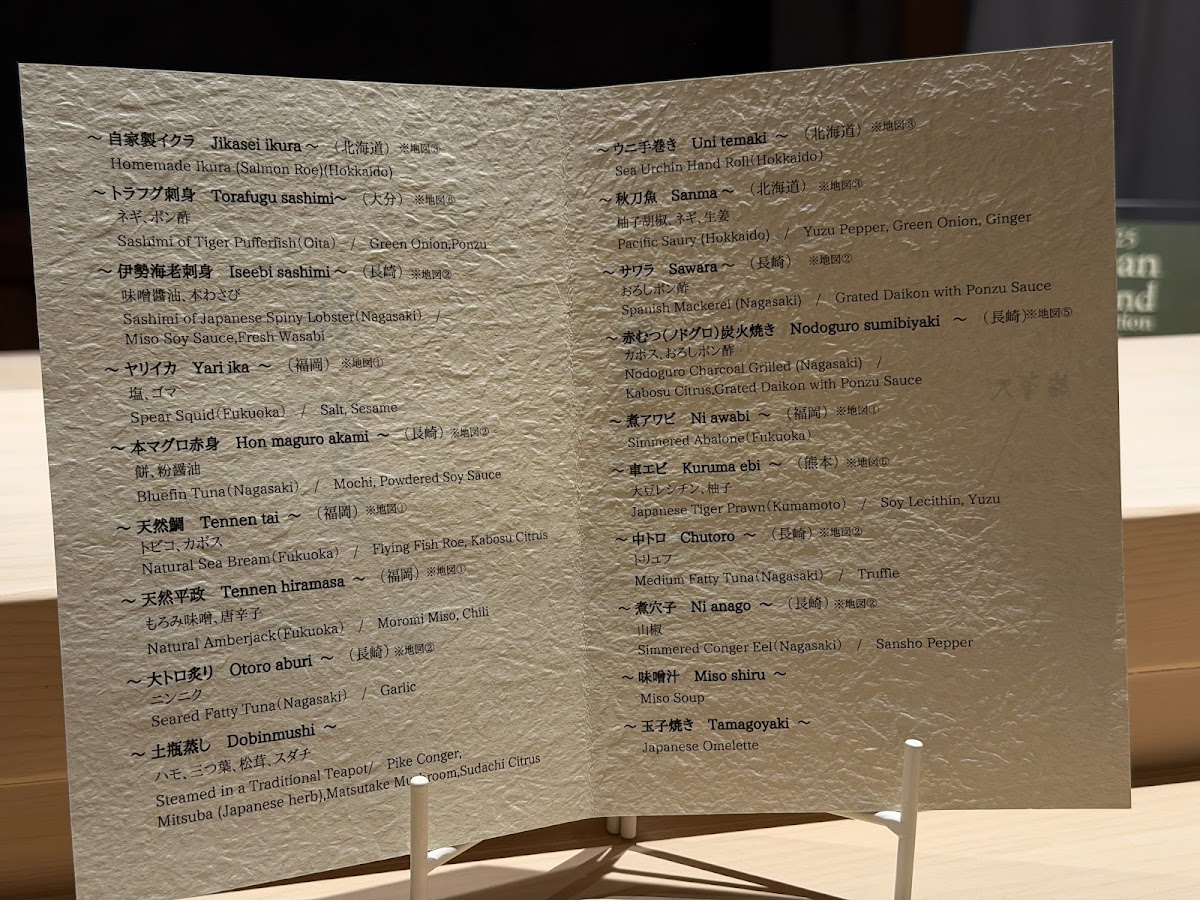 ～ 自家製イクラ Jikasei ikura～ （北海道） ※地図③
Homemade Ikura (Salmon Roe)(Hokkaido)
～ トラフグ刺身 Torafugu sashimi～ （大分） ※地図⑥
ネギ、ポン酢
Sashimi of Tiger Pufferfish(Oita) / Green Onion,Ponzu
～ 伊勢海老刺身 Iseebi sashimi～ （長崎） ※地図②
味噌醤油、本わさび
Sashimi of Japanese Spiny Lobster(Nagasaki) /
Miso Soy Sauce,Fresh Wasabi
～ ヤリイカ Yari ika ～ （福岡） ※地図①
塩、ゴマ
Spear Squid(Fukuoka) / Salt, Sesame
～ 本マグロ赤身 Hon maguro akami ～ （長崎） ※地図②
餅、粉醤油
Bluefin Tuna(Nagasaki) / Mochi, Powdered Soy Sauce
～ 天然鯛 Tennen tai ～ （福岡） ※地図①
トビコ、カボス
Natural Sea Bream(Fukuoka) / Flying Fish Roe, Kabosu Citrus
～ 天然平政 Tennen hiramasa ～ （福岡） ※地図①
もろみ味噌、唐辛子
Natural Amberjack(Fukuoka) / Moromi Miso, Chili
～ 大トロ炙り Otoro aburi ～ （長崎） ※地図②
ニンニク
Seared Fatty Tuna(Nagasaki) / Garlic
～ 土瓶蒸し Dobinmushi ～
ハモ、三つ葉、松茸、スダチ
Steamed in a Traditional Teapot/ Pike Conger,
Mitsuba (Japanese herb),Matsutake Mushroom,Sudachi Citrus
～ ウニ手巻き Uni temaki ～ （北海道） ※地図③
Sea Urchin Hand Roll(Hokkaido)
～ 秋刀魚 Sanma～ （北海道） ※地図③
柚子胡椒、ネギ、生姜
Pacific Saury (Hokkaido) / Yuzu Pepper, Green Onion, Ginger
～ サワラ Sawara～ （長崎） ※地図②
おろしポン酢
Spanish Mackerel (Nagasaki) / Grated Daikon with Ponzu Sauce
～ 赤むつ(ノドグロ)炭火焼き Nodoguro sumibiyaki ～ （長崎）※地図⑤
カボス、おろしポン酢
Nodoguro Charcoal Grilled (Nagasaki) /
Kabosu Citrus,Grated Daikon with Ponzu Sauce
～ 煮アワビ Ni awabi ～ （福岡） ※地図①
Simmered Abalone(Fukuoka)
～ 車エビ Kuruma ebi ～ （熊本） ※地図
大豆レシチン、柚子
Japanese Tiger Prawn(Kumamoto) / Soy Lecithin, Yuzu
～ 中トロ Chutoro ～ （長崎） ※地図②
トリュフ
Medium Fatty Tuna(Nagasaki) / Truffle
～ 煮穴子 Ni anago ～ （長崎） ※地図②
山椒
Simmered Conger Eel(Nagasaki) / Sansho Pepper
～ 味噌汁 Miso shiru ～
Miso Soup
～ 玉子焼き Tamagoyaki ～
Japanese Omelette